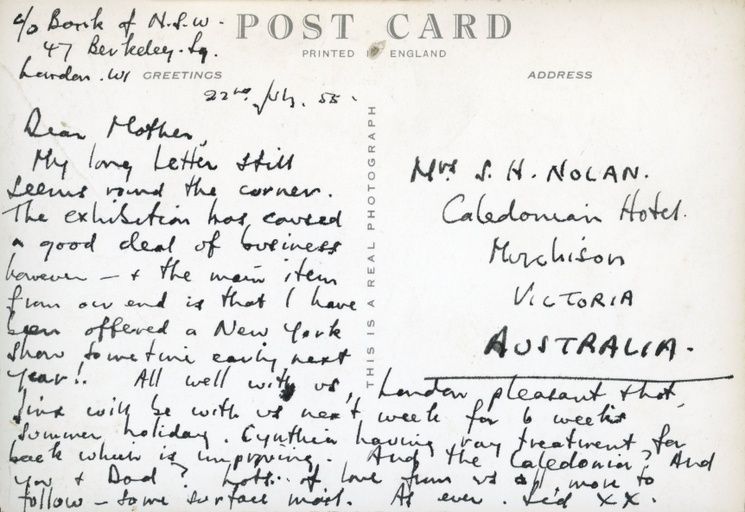 c/o Bank of N.S.W.
47 Berkeley. Sq.
London. W1
POST CARD
PRINTED IN ENGLAND
GREETINGS
ADDRESS
22nd July. 55.
Dear Mother,
My long letter still
seems round the corner.
The exhibition has caused
a good deal of business
however – & the main item
from our end is that I have
been offered a New York
show sometime early next
year!! All well with us, London pleasant & hot,
Jinx will be with us next week for 6 weeks
summer holiday. Cynthia having ray treatment for
back which is improving. And the Caledonian, And
you & Dad? Lots of love from us all, more to
follow – some surface mail. As ever. Sid XX.
THIS IS A REAL PHOTOGRAPH
Mrs S. H. NOLAN.
Caledonian Hotel.
Murchison
VICTORIA
AUSTRALIA.